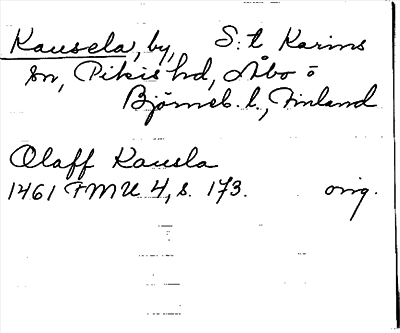 Kausela, by, S:t Karins
sn, Pikis hd, Åbo o
Björneb. l., Finland
Olaff Kausla
1461 FMU 4, s. 173. orig.